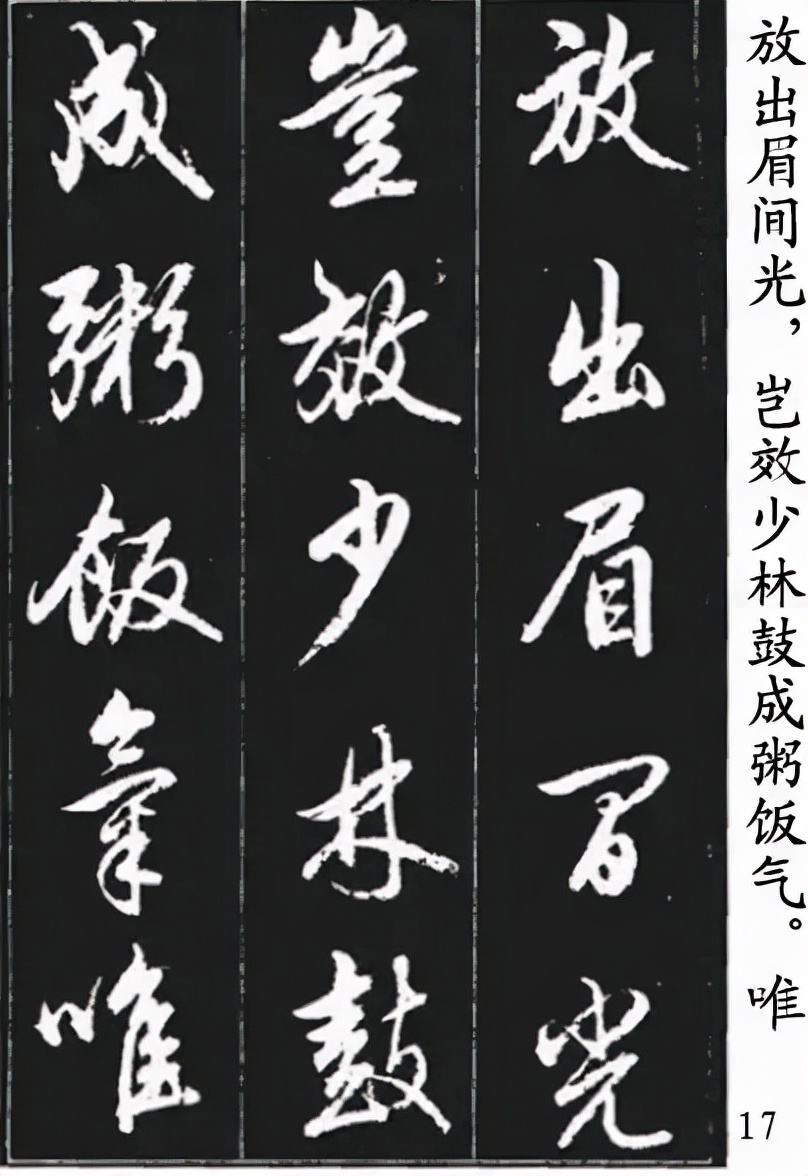 放出眉间光，岂效少林鼓成粥饭气。唯
放出眉間光
豈效少林鼓
成粥飯氣唯
17